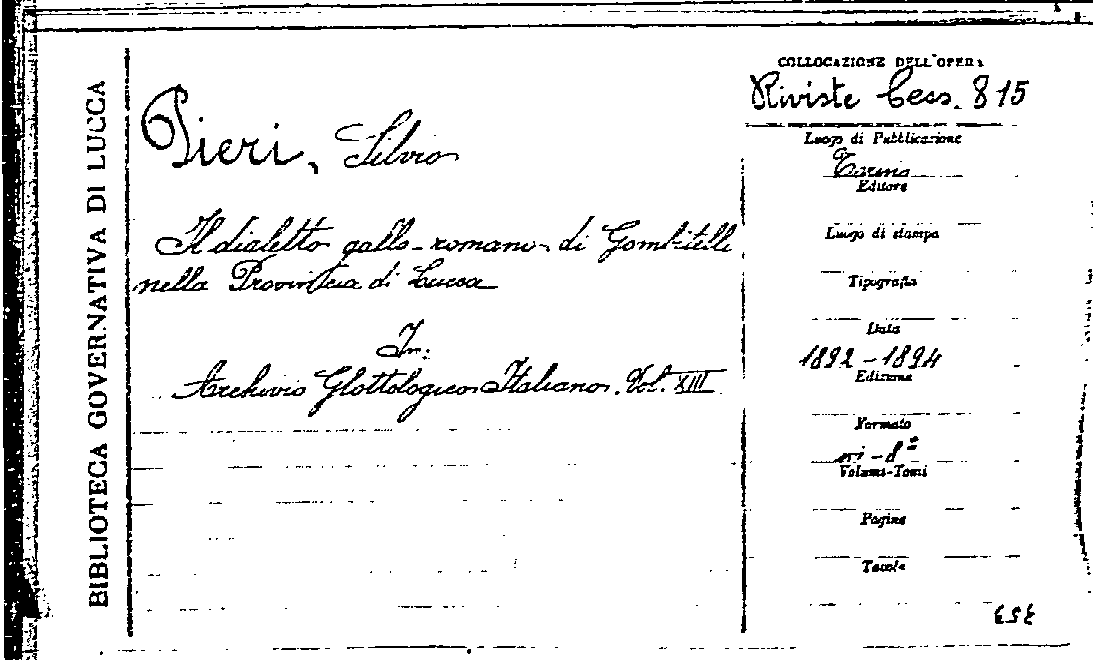 BIBLIOTECA GOVERNATIVA DI LUCCA
Pieri, Silvio
Il dialetto gallo-romano di Gombitelli
nella Provincia di Lucca
In:
Archivio Glottologico Italiano. Vol. XIII
COLLOCAZIONE DELL'OPERA
Riviste Cess. 815
Luogo di Pubblicazione
Torino
Editore
Luogo di stampa
Tipografia
Data
1892-1894
Edizione
Formato
in-8º
Volumi-Tomi
Pagine
Tavole
353